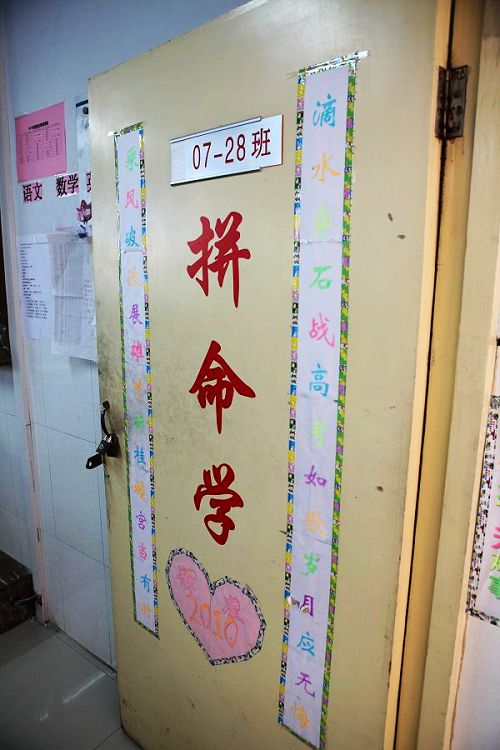 07-28班
滴水穿石战高考如歌岁月应无悔
乘风破浪展雄才折桂蟾宫当有时
拼命学
2010
语文 数学